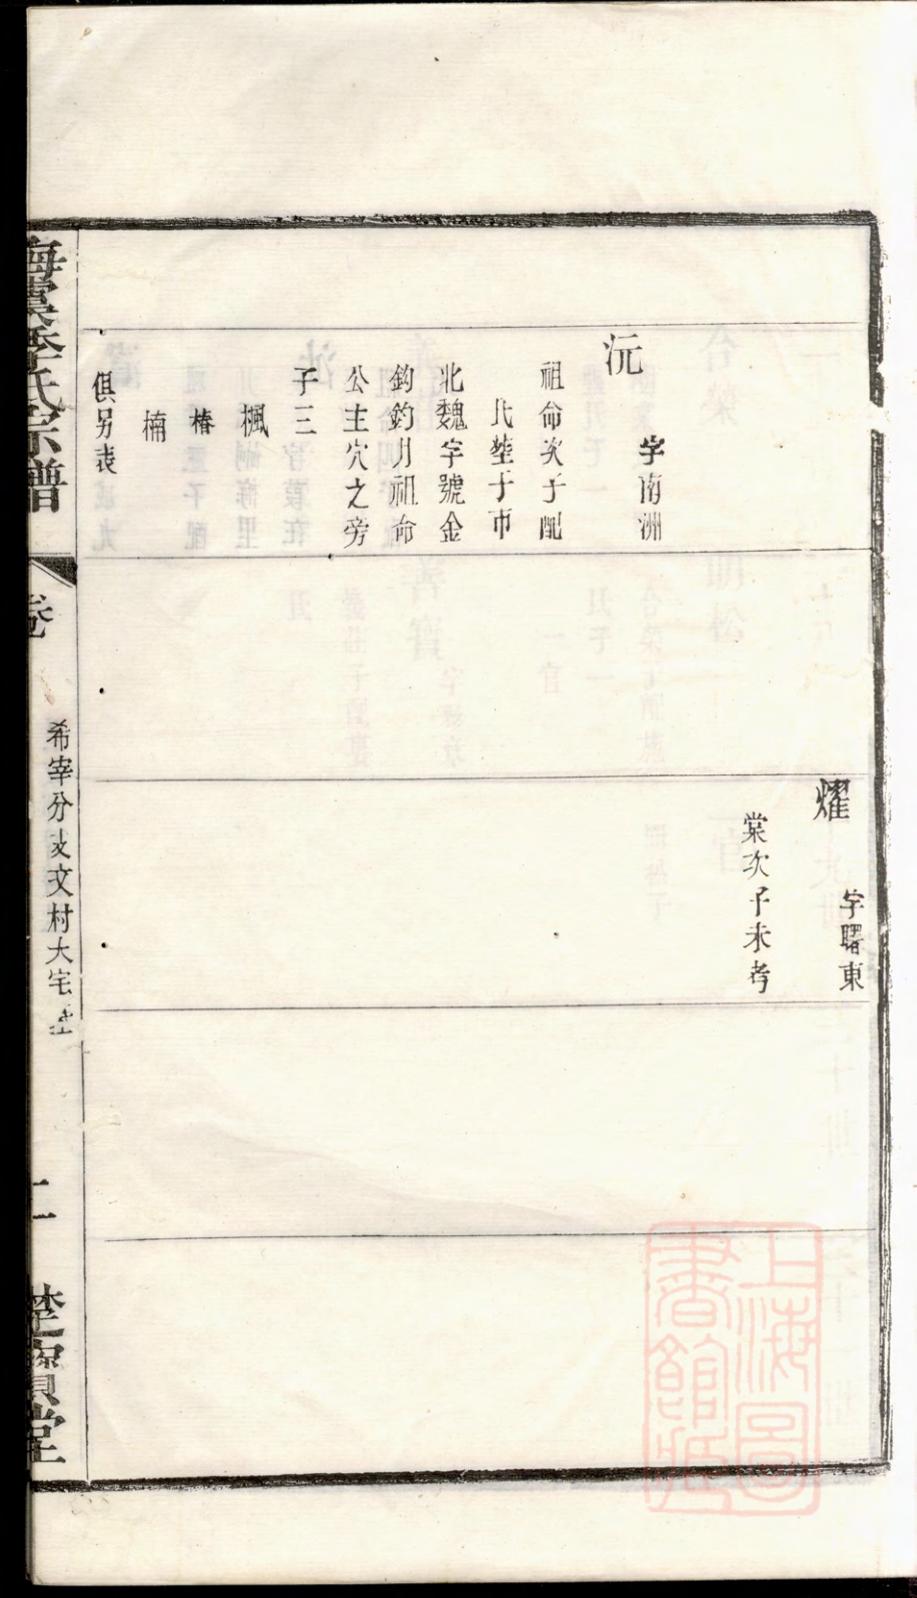 沅
字南洲
祖命次子配
氏塟于市
北魏字號金
鈎釣月祖命
公主穴之旁
子三
楓
椿
楠
俱另表
燿
字曙東
棠次子未考
季氏宗譜
卷
希宰分支文村大宅
二
楚寶堂
上海圖
書館藏